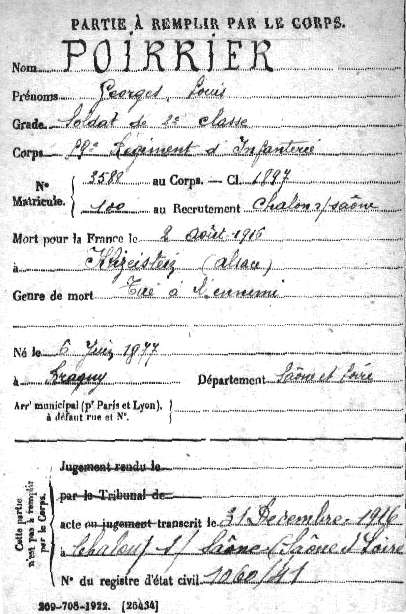 PARTIE À REMPLIR PAR LE CORPS.
Nom POIRRIER
Prénoms Georges Louis
Grade Soldat de 2e classe
Corps Régiment d'Infanterie
Nº Matricule. { 3580 au Corps. — Cl. 1897
100 au Recrutement Chalon s/ Saône
Mort pour la France le 2 Août 1916
à (Alsace)
Genre de mort Tué à l'ennemi
Né le 6 Juin 1877
à Bragny Département Saône et Loire
Arrt municipal (pr Paris et Lyon), à défaut rue et Nº. }
Cette partie n'est pas à remplir par le Corps.
Jugement rendu le
par le Tribunal de
acte ou jugement transcrit le 31 Décembre 1916
à Chalon s/ Saône (Saône et Loire
Nº du registre d'état civil 1060/41
269-708-1922. [26434]